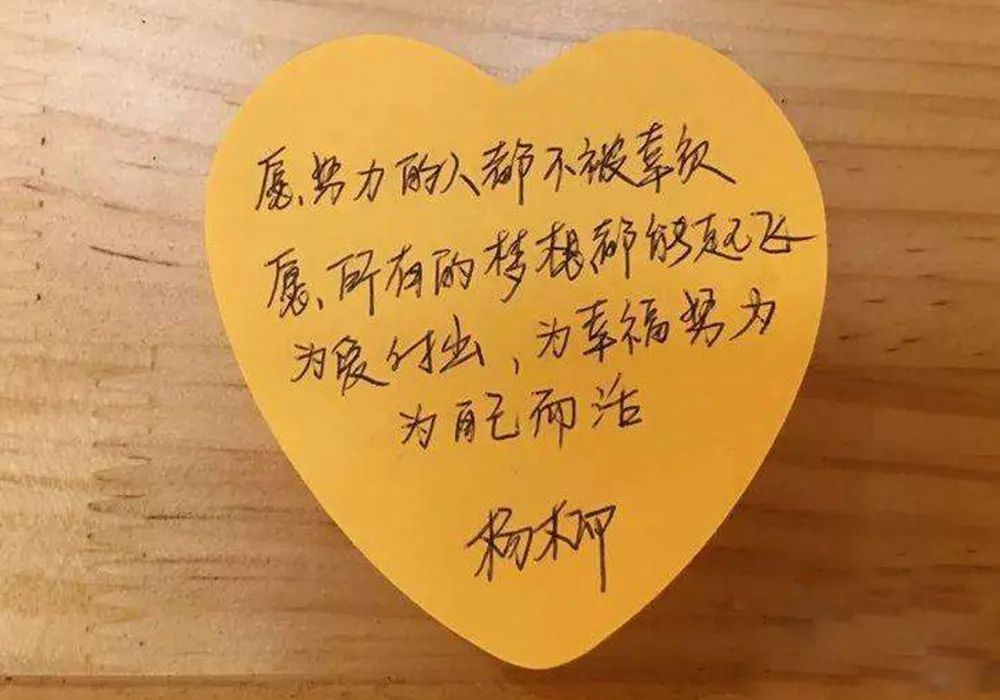 愿努力的人都不被辜负
愿所有的梦想都能起飞
为爱付出，为幸福努力
为自己而活
杨柳